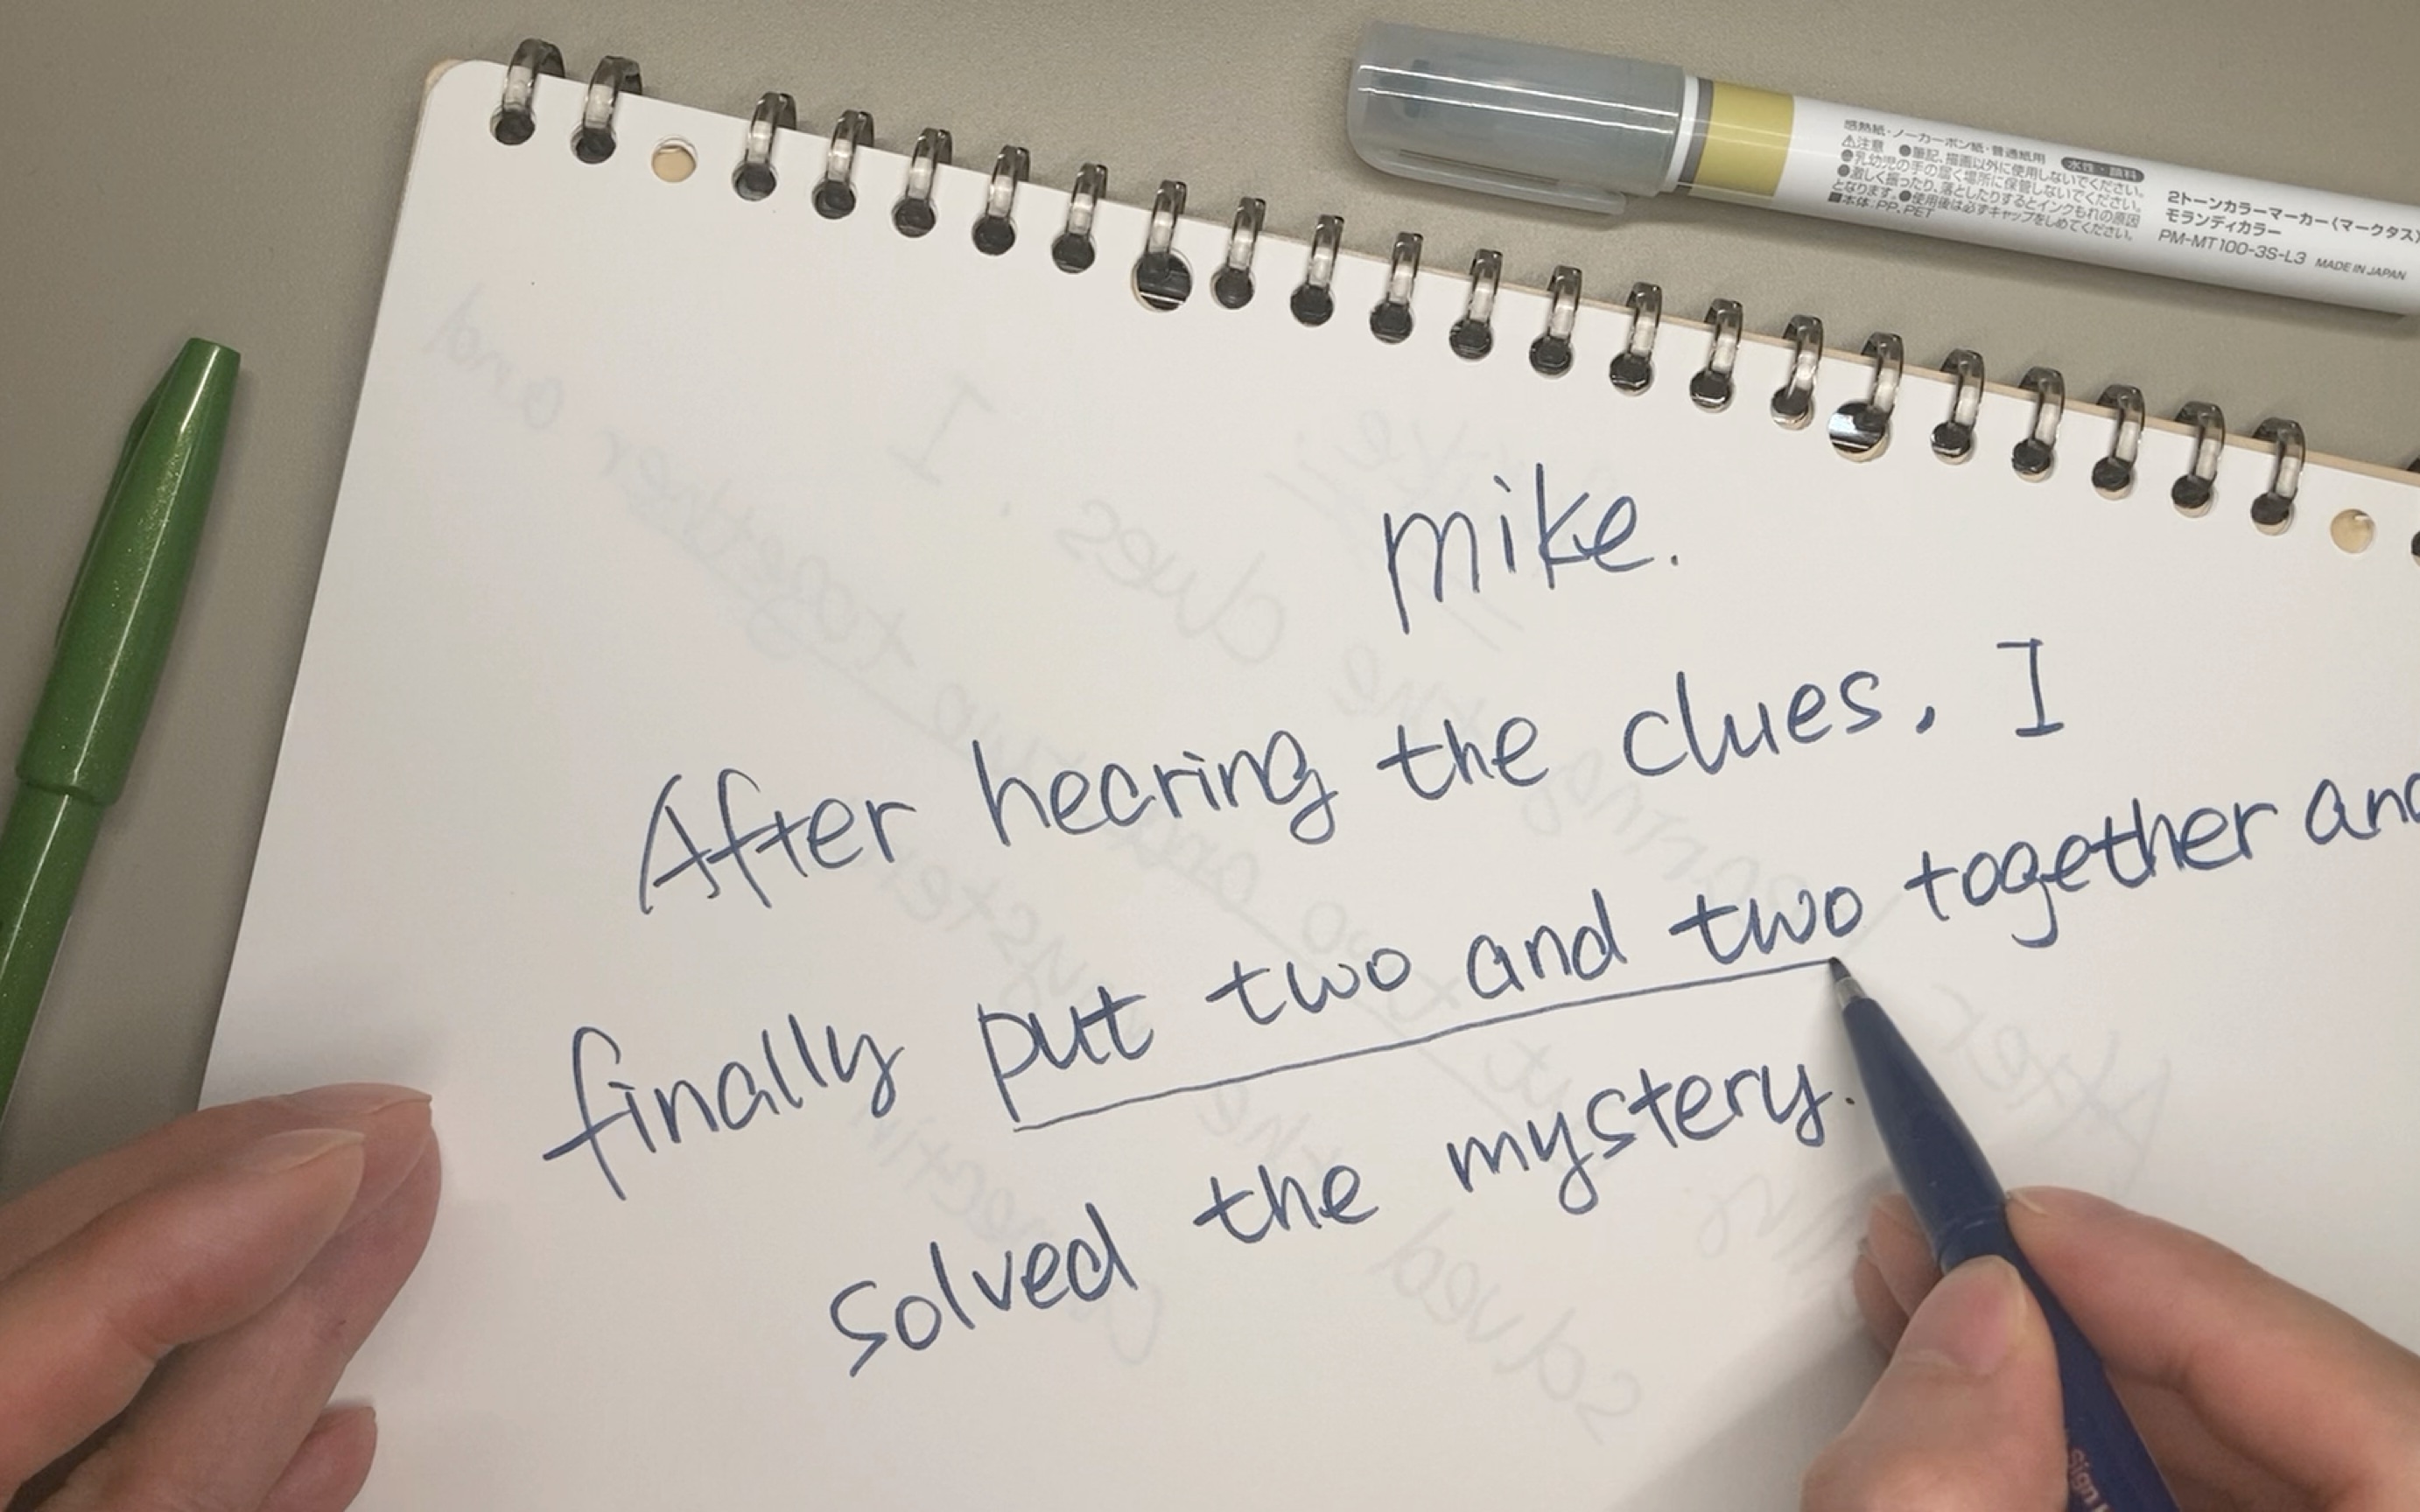 mike.
After hearing the clues, I
finally put two and two together and
solved the mystery.
感熱紙・ノーカーボン紙・普通紙用 水性・顔料
⚠注意 ●筆記、描画以外に使用しないでください。
●乳幼児の手の届く場所に保管しないでください。
●激しく振ったり、落としたりするとインクもれの原因
となります。●使用後は必ずキャップをしめてください。
■本体:PP、PET
2トーンカラーマーカー〈マークタス〉
モランディカラー
PM-MT100-3S-L3 MADE IN JAPAN